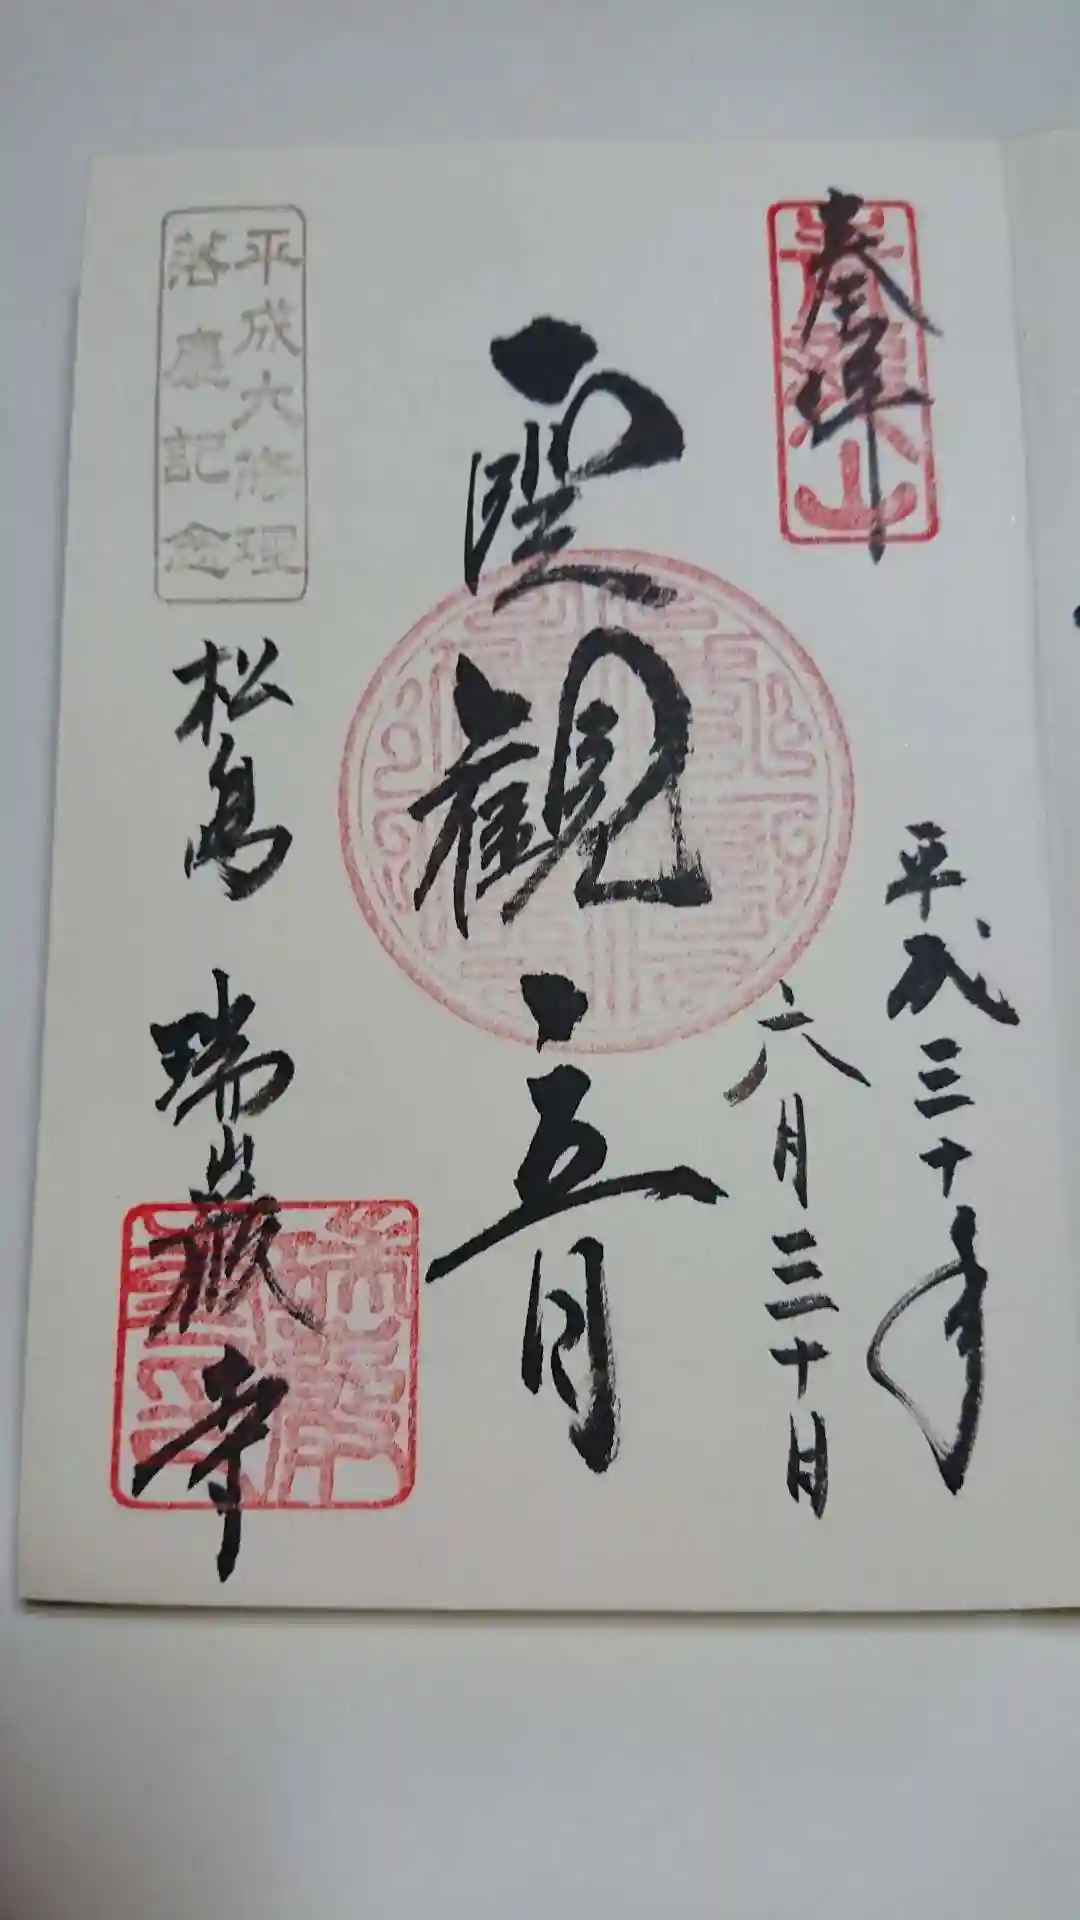 奉拝
青龍山
平成三十年
六月三十日
聖観世音
平成大修理
落慶記念
松島 瑞巌寺